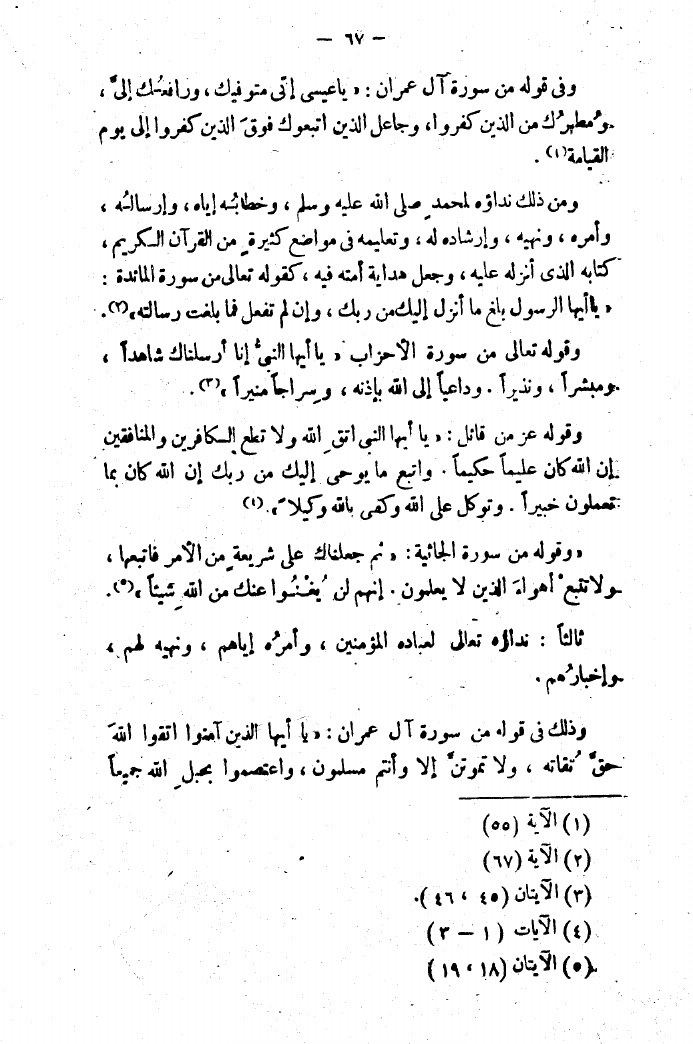 — ٦٧ —
وفى قوله من سورة آل عمران : « ياعيسى إنّى متوفيك ، ورافعُـك إلىَّ ،
ومُطهرُك من الذين كفروا، وجاعل الذين اتبعوك فوقَ الذين كفروا إلى يوم
القيامة(١) .
ومن ذلك نداؤه لمحمدٍ صلى الله عليه وسلم ، وخطابُـه إياه ، وإرسالُـه ،
وأمره ، ونهيه ، وإرشاده له ، وتعليمه فى مواضع كثيرةٍ من القرآن الـكريم ،
كتابه الذى أنزله عليه ، وجعل هداية أمته فيه ، كقوله تعالى من سورة المائدة :
« ياأيها الرسول بلغ ما أنزل إليك من ربك ، وإن لم تفعل فما بلغت رسالته»(٢).
وقوله تعالى من سورة الأحزاب « يا أيها النبىُّ إنا أرسلناك شاهداً ،
ومبشراً ، ونذيراً . وداعياً إلى الله بإذنه ، وسِراجاً منيراً »(٣) .
وقوله عز من قائل : « يا أيها النبى اتق الله ولا تطع الـكافرين والمنافقين
إن الله كان عليماً حكيماً . واتبع ما يوحى إليك من ربك إن الله كان بما
تعملون خبيراً . وتوكل على الله وكفى بالله وكيلاً ». (٤)
«وقوله من سورة الجاثية : « ثم جعلناك على شريعةٍ من الأمر فاتبعها ،
ولاتتبعْ أهواءَ الذين لا يعلمون . إنهم لن يُغْـنُـوا عنك من اللهِ شيئاً »(٥).
ثالثاً : نداؤه تعالى لعباده المؤمنين ، وأمرُه إياهم ، ونهيه لهم ،
وإخبارُهم .
وذلك فى قوله من سورة آل عمران : «يا أيها الذين آمنوا اتقوا اللهَ
حقَّ تُقاته ، ولا تموتنَّ إلا وأنتم مسلمون ، واعتصموا بحبلِ الله جميعاً
(١) الآية (٥٥)
(٢) الآية (٦٧)
(٣) الآيتان (٤٥ ، ٤٦ ).
(٤) الآيات ( ١ – ٣ )
(٥) الآيتان (١٨ ، ١٩ )